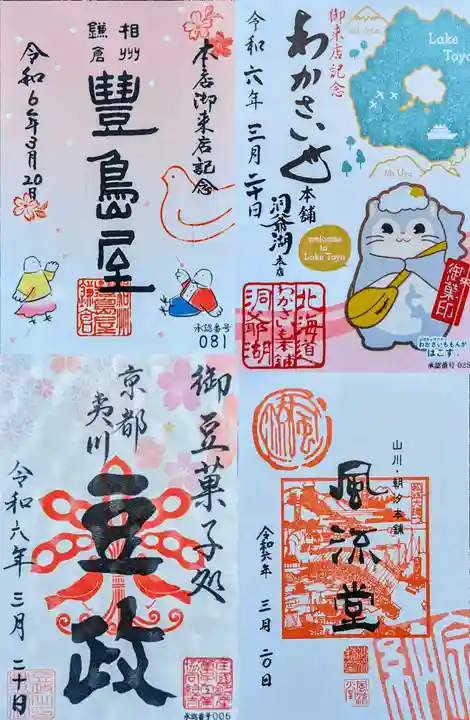 本店御来店記念
相州
鎌倉
豐島屋
令和6年3月20日
承認番号
081
御来店記念
わかさいも
本舗
洞爺湖本店
令和六年三月二十日
Lake
Toya
Mt Usu
welcome
to
Lake Toya
御菓印
北海道
わかさいも本舗
洞爺湖
わかさいももんが
はこす。
承認番号 025
御豆菓子処
京都
夷川
豆政
令和六年三月二十日
承認番号005
山川・朝汐本舗
風流堂
令和六年三月二〇日